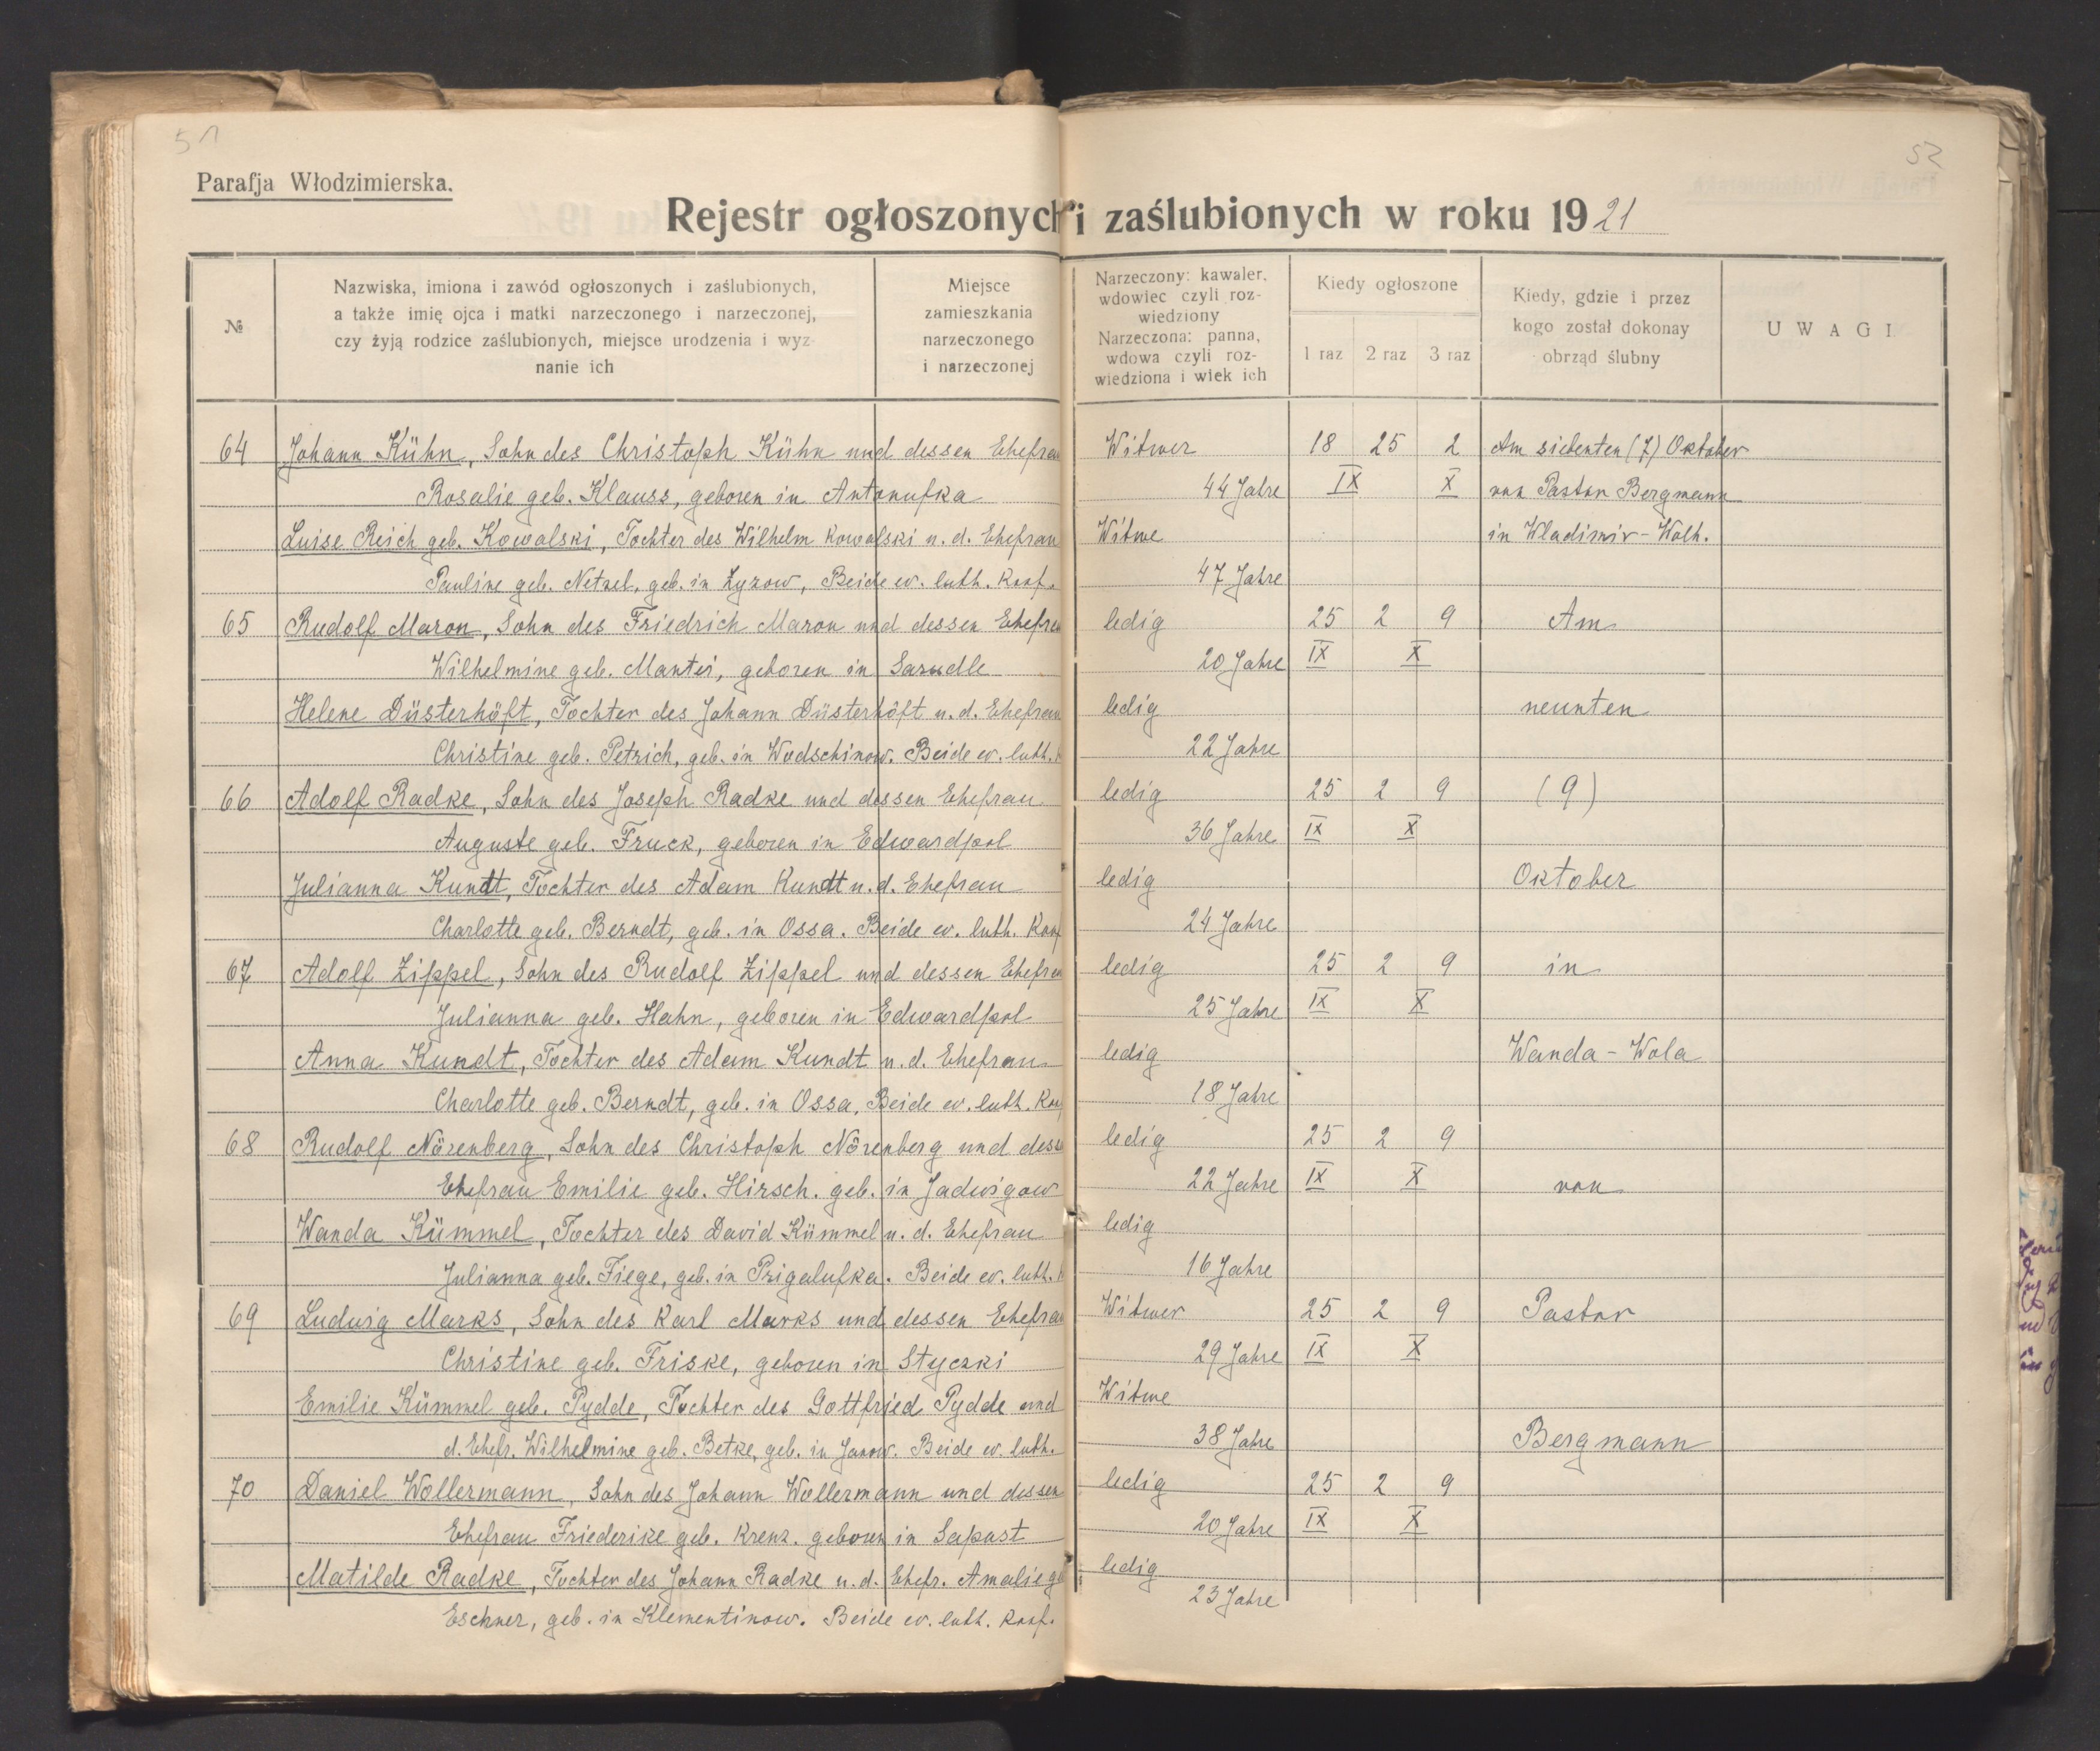 51
52
Parafja Włodzimierska.
Rejestr ogłoszonych i zaślubionych w roku 1921
№
Nazwiska, imiona i zawód ogłoszonych i zaślubionych,
a także imię ojca i matki narzeczonego i narzeczonej,
czy żyją rodzice zaślubionych, miejsce urodzenia i wyz-
nanie ich
Miejsce
zamieszkania
narzeczonego
i narzeczonej
Narzeczony: kawaler,
wdowiec czyli roz-
wiedziony
Narzeczona: panna,
wdowa czyli roz-
wiedziona i wiek ich
Kiedy ogłoszone
1 raz 2 raz 3 raz
Kiedy, gdzie i przez
kogo został dokonay
obrząd ślubny
UWAGI
64 Johann Kühn, Sohn des Christoph Kühn und dessen Ehefrau Witwer 18 25 2 Am siebenten (7) Oktober
Rosalie geb. Klauss, geboren in Antonufka 44 Jahre IX X von Pastor Bergmann
Luise Reich geb. Kowalski, Tochter des Wilhelm Kowalski u. d. Ehefrau Witwe in Wladimir-Wolh.
Pauline geb. Netzel, geb. in Zyzow, Beide ev. luth. Konf. 47 Jahre
65 Rudolf Maron, Sohn des Friedrich Maron und dessen Ehefrau ledig 25 2 9 Am
Wilhelmine geb. Mantei, geboren in Sarudle 20 Jahre IX X
Helene Düsterhöft, Tochter des Johann Düsterhöft u. d. Ehefrau ledig neunten
Christine geb. Petrich, geb. in Wodschinow. Beide ev. luth. 22 Jahre
66 Adolf Radke, Sohn des Joseph Radke und dessen Ehefrau ledig 25 2 9 (9)
Auguste geb. Fruck, geboren in Edwardpol 36 Jahre IX X
Julianna Kundt, Tochter des Adam Kundt u. d. Ehefrau ledig Oktober
Charlotte geb. Berndt, geb. in Ossa. Beide ev. luth. Konf 24 Jahre
67 Adolf Zippel, Sohn des Rudolf Zippel und dessen Ehefrau ledig 25 2 9 in
Julianna geb. Hahn, geboren in Edwardpol 25 Jahre IX X
Anna Kundt, Tochter des Adam Kundt u. d. Ehefrau ledig Wanda-Wola
Charlotte geb. Berndt, geb. in Ossa, Beide ev. luth. Konf 18 Jahre
68 Rudolf Nörenberg, Sohn des Christoph Nörenberg und dessen ledig 25 2 9
Ehefrau Emilie geb. Hirsch. geb. in Jadwigow 22 Jahre IX X von
Wanda Kümmel, Tochter des David Kümmel u. d. Ehefrau ledig
Julianna geb. Fiege, geb. in Prigalufka. Beide ev. luth. 16 Jahre
69 Ludwig Marks, Sohn des Karl Marks und dessen Ehefrau Witwer 25 2 9 Pastor
Christine geb. Friske, geboren in Styczki 29 Jahre IX X
Emilie Kümmel geb. Pydde, Tochter des Gottfried Pydde und Witwe
d. Ehefr. Wilhelmine geb. Betke, geb. in Janow. Beide ev. luth. 38 Jahre Bergmann
70 Daniel Wollermann, Sohn des Johann Wollermann und dessen ledig 25 2 9
Ehefrau Friederike geb. Krenz. geboren in Sapust 20 Jahre IX X
Matilde Radke, Tochter des Johann Radke u. d. Ehefr. Amalie ge ledig
Eschner, geb. in Klementinow. Beide ev. luth. Konf. 23 Jahre